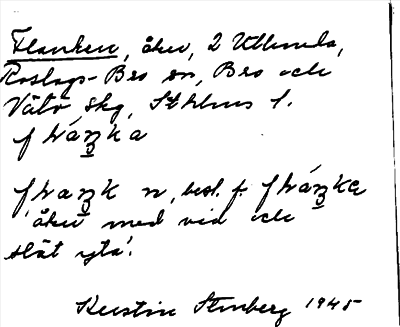 Flanken, åker, 2 Utlunda,
Roslags-Bro sn, Bro och
Väto skg, Sthlms l.
flank n, best. f.
åker med vid och
slät yta'.
Kerstin Stenberg 1945